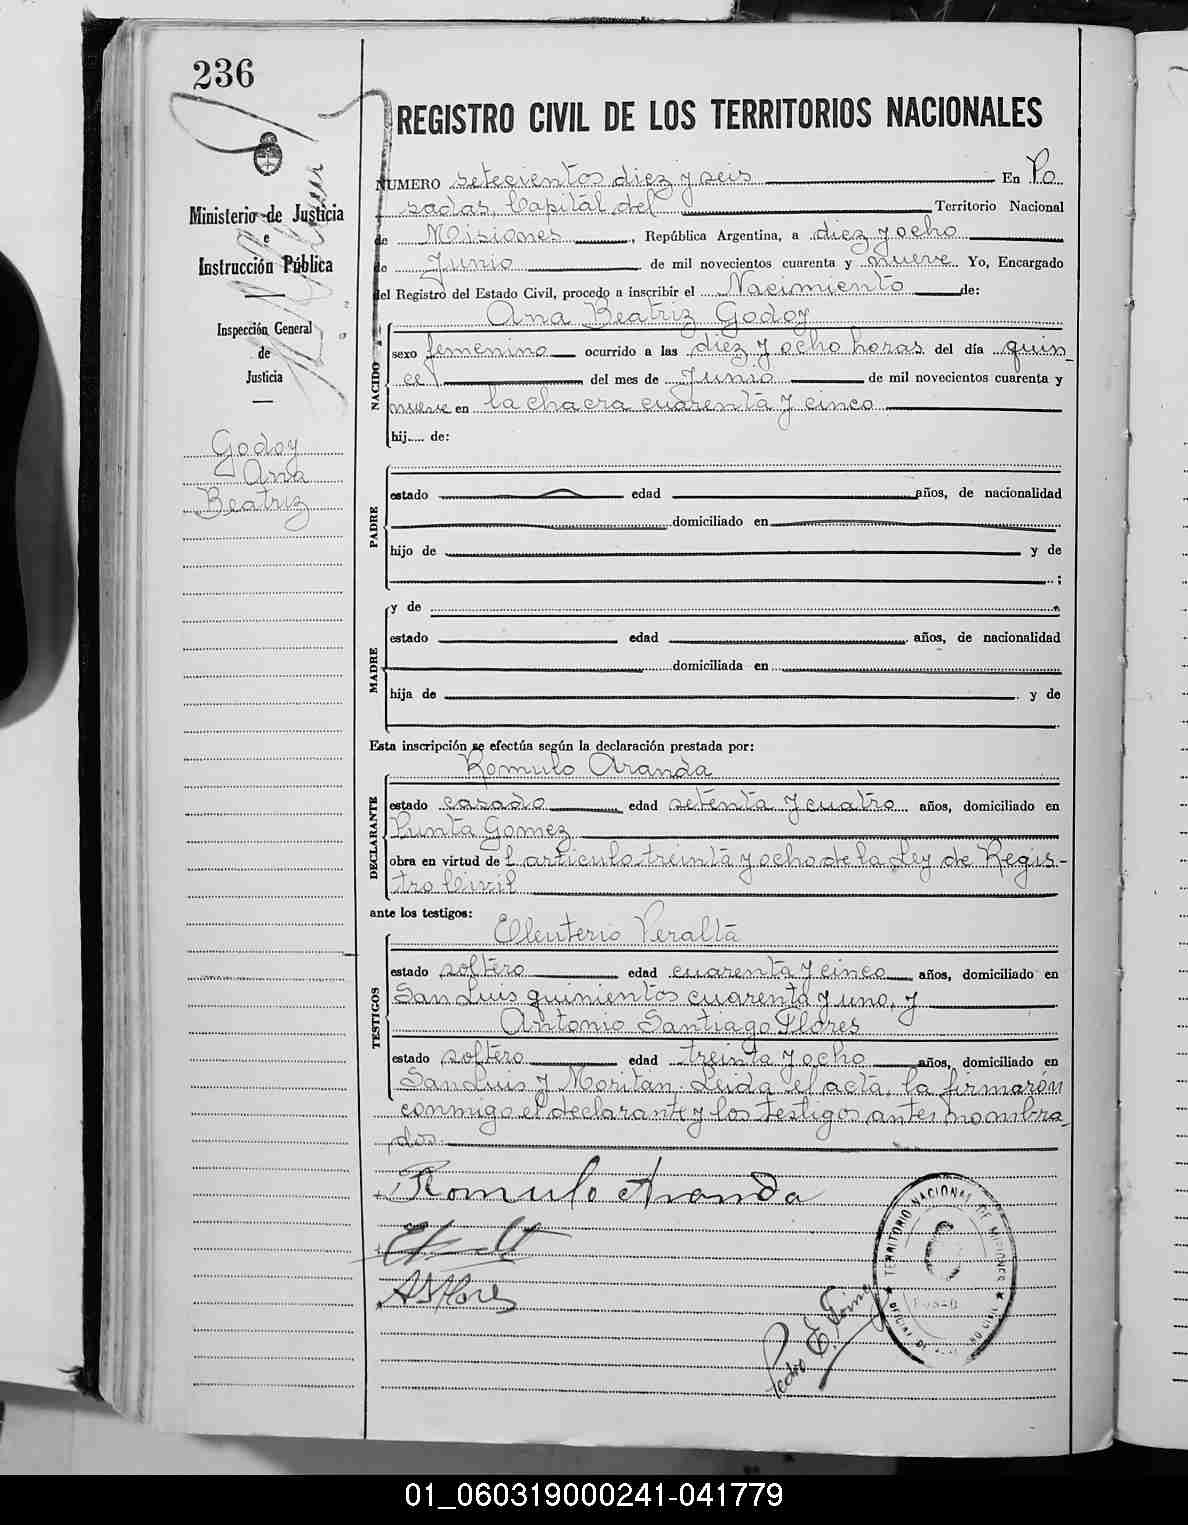 236
REGISTRO CIVIL DE LOS TERRITORIOS NACIONALES
Ministerio de Justicia
e
Instrucción Pública
Inspección General
de
Justicia
Godoy
Ana
Beatriz
NUMERO setecientos diez y seis En Po
sadas, Capital del Territorio Nacional
de Misiones, República Argentina, a diez y ocho
de Junio de mil novecientos cuarenta y nueve Yo, Encargado
del Registro del Estado Civil, procedo a inscribir el Nacimiento de:
Ana Beatriz Godoy
NACIDO
sexo femenino ocurrido a las diez y ocho horas del día quin
ce del mes de Junio de mil novecientos cuarenta y
nueve en la chacra cuarenta y cinco
hij..... de:
PADRE
estado edad años, de nacionalidad
domiciliado en
hijo de y de
;
MADRE
y de
estado edad años, de nacionalidad
domiciliada en
hija de y de
Esta inscripción se efectúa según la declaración prestada por:
Romulo Aranda
DECLARANTE
estado casado edad setenta y cuatro años, domiciliado en
Punta Gomez
obra en virtud del articulo treinta y ocho de la Ley de Regis-
tro Civil
ante los testigos:
Eleuterio Peralta
TESTIGOS
estado soltero edad cuarenta y cinco años, domiciliado en
San Luis quinientos cuarenta y uno, y
Antonio Santiago Flores
estado soltero edad treinta y ocho años, domiciliado en
San Luis y Moritán. Leida el acta, la firmarón
conmigo el declarante y los testigos antes nombra
dos.
Romulo Aranda
A S Flores
Pedro E.
TERRITORIO NACIONAL DE MISIONES
01_060319000241-041779